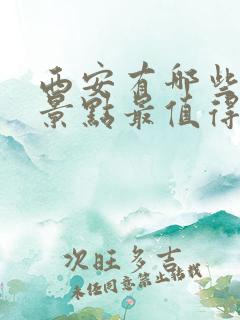 西安有哪些
景點最值得
次旺多吉
未经同意禁止转载